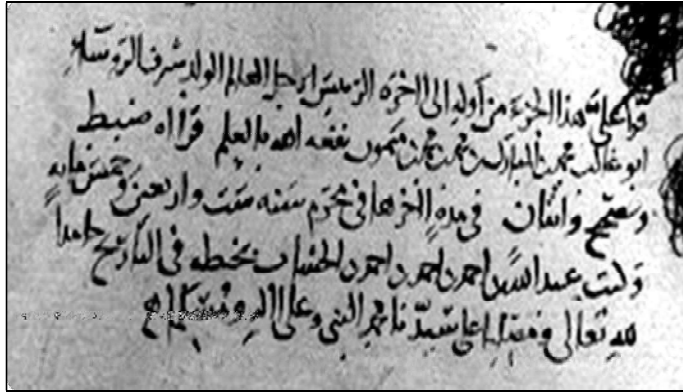 قرأ علي هذا الجزء من أوله إلى آخره الرئيس الأجل العالم الولد شرف الرؤساء
أبو غالب محمد بن المبارك بن محمد بن محمد بن ميمون نفعه الله بالعلم قراءة ضبط
وتصحيح وإتقان في مدة آخرها في محرم سنة ست وأربعين وخمس مائة
وكتب عبد الله بن أحمد بن أحمد بن أحمد الخشاب بخطه في التاريخ حامدا
لله تعالى ومصليا على سيدنا محمد النبي وعلى آله